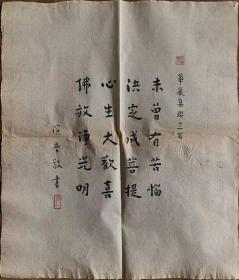 華嚴集聯三百
未曾有苦惱
決定成菩提
心生大歡喜
佛放淨光明